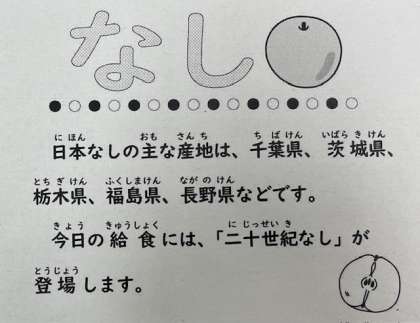 なし
日本なしの主な産地は、千葉県、茨城県、
栃木県、福島県、長野県などです。
今日の給食には、「二十世紀なし」が
登場します。